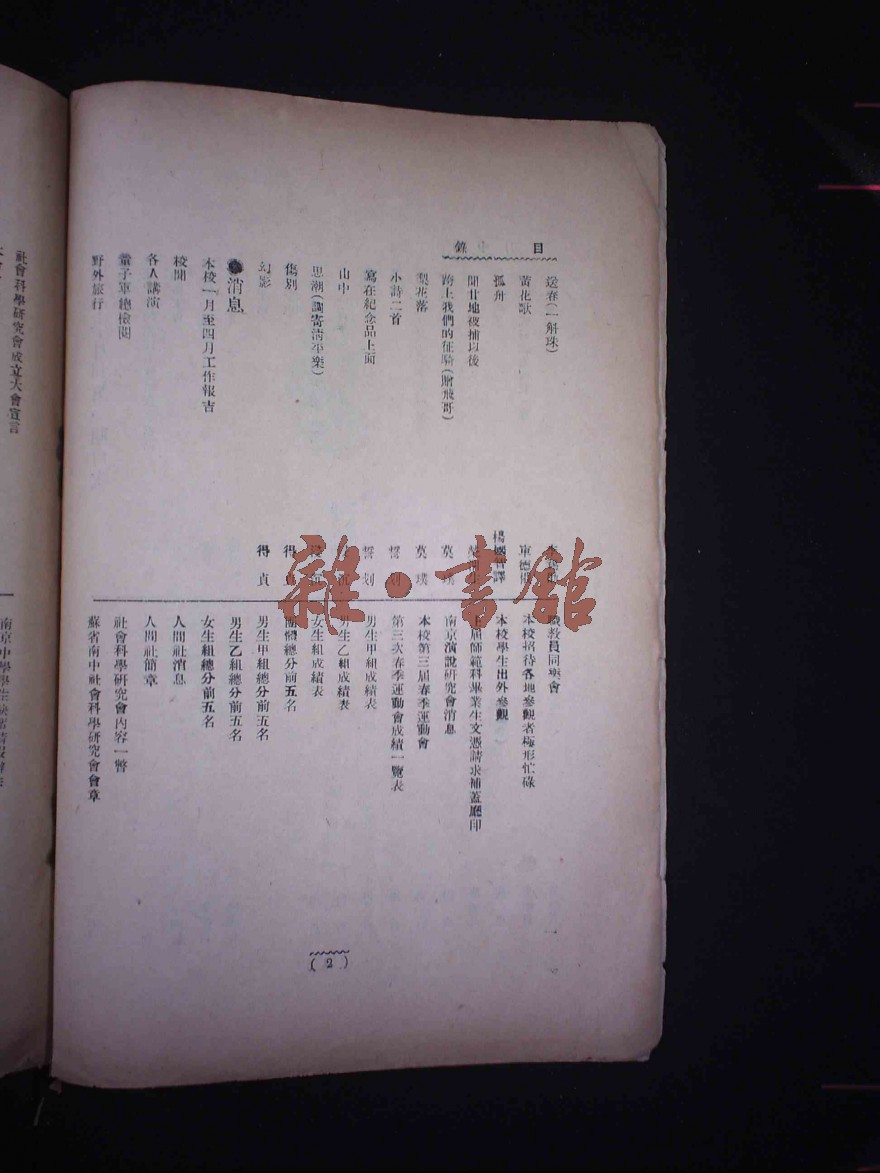 目錄
送春(一斛珠)
黃花歌
車德
孤舟
楊國 譯
聞廿地被捕以後
跨上我們的征騎(贈戒哥)
莫
梨花落
莫璞
小詩二首
誓剑
寫在紀念品上面
誓剑
山中
思潮(調寄清平樂)
傷別
得貞
幻影
得貞
消息
本校一月至四月工作報吿
校聞
各人講演
童子軍總檢閱
野外旅行
職教員同樂會
本校招待各地參觀者極形忙碌
本校學生出外參觀
上屆師範科畢業生文憑請求補蓋廳印
南京演說研究會消息
本校第三屆春季運動會
第三次春季運動會成績一覽表
男生甲組成績表
男生乙組成績表
女生組成績表
團體總分前五名
男生甲組總分前五名
男生乙組總分前五名
女生組總分前五名
人間社消息
人間社簡章
社會科學研究會內容一瞥
蘇省南中社會科學研究會會章
(2)
社會科學研究會成立大會宣言
南京中學學生
雜·書館